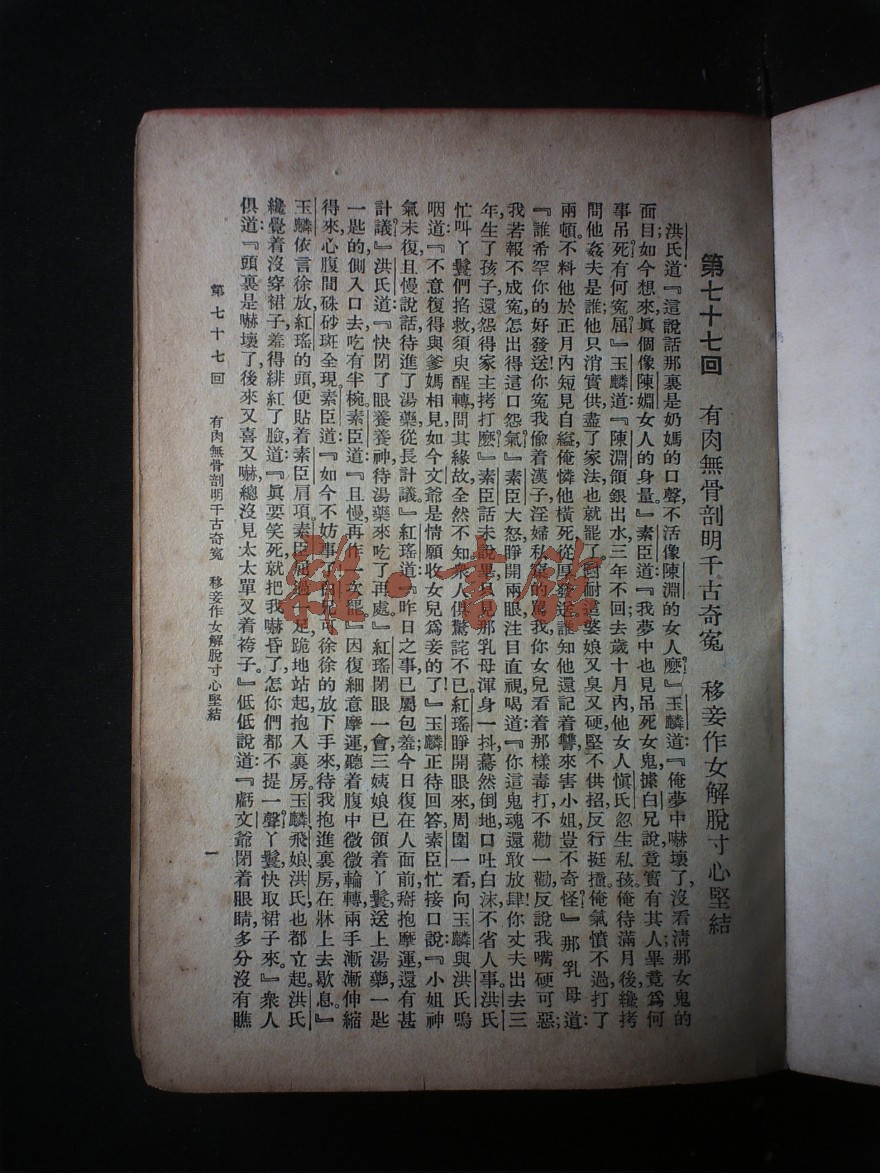 第七十七回　有肉無骨剖明千古奇冤　移妾作女解脫寸心堅結
洪氏道：『這說話那裏是奶媽的口聲，不活像陳淵的女人麼？』玉麟道：『俺夢中嚇壞了，沒看淸那女鬼的
面目；如今想來，眞個像陳淵女人的身量。』素臣道：『我夢中也見吊死女鬼，據白兄說，竟實有其人，畢竟爲何
事吊死？有何冤屈？』玉麟道：『陳淵領銀出水，三年不回，去歲十月內，他女人愼氏忽生私孩。俺待滿月後，纔拷
問他姦夫是誰，他只消實供，盡了家法，也就罷了。尀耐這婆娘又臭又硬，堅不供招，反行挺撞。俺氣憤不過，打了
兩頓。不料他於正月內短見自縊，俺憐他橫死，從厚發送。誰知他還記着讐，來害小姐，豈不奇怪！』那乳母道：
『誰希罕你的好發送！你冤我偸着漢子，淫婦私窠的罵我，你女兒看着那樣毒打，不勸一勸，反說我嘴硬可惡；
我若報不成冤，怎出得這口怨氣！』素臣大怒，睜開兩眼，注目直視，喝道：『你這鬼魂還敢放肆！你丈夫出去三
年，生了孩子，還怨得家主拷打麼！』素臣話未說畢，只見那乳母渾身一抖，驀然倒地，口吐白沫，不省人事。洪氏
忙叫丫鬟們掐救，須臾醒轉，問其緣故，全然不知。衆人俱驚詫不已。紅瑤睜開眼來，周圍一看，向玉麟與洪氏嗚
咽道：『不意復得與爹媽相見，如今文爺是情願收女兒爲妾的了！』玉麟正待回答，素臣忙接口說：『小姐神
氣未復，且慢說話，待進了湯藥，從長計議。』紅瑤道：『昨日之事，已屬包羞；今日復在人面前，搿抱摩運，還有甚
計議？』洪氏道：『快閉了眼，養養神，待湯藥來吃了再處。』紅瑤閉眼一會，三姨娘已領着丫鬟，送上湯藥，一匙
一匙的側入口去，吃有半椀。素臣道：『且慢，再作一次罷。』因復細意摩運，聽着腹中微微輪轉，兩手漸漸伸縮
得來，心腹間硃砂斑全現。素臣道：『如今不妨事了，白兄可徐徐的放下手來，待我抱進裏房，在牀上去歇息。』
玉麟依言徐放，紅瑤的頭，便貼着素臣肩項。素臣屈過一足，跪地站起，抱入裏房。玉麟、飛娘、洪氏也都立起。洪氏
纔覺着沒穿裙子，羞得緋紅了臉，道：『眞要笑死，就把我嚇昏了，怎你們都不提一聲？丫鬟快取裙子來。』衆人
俱道：『頭裏是嚇壞了，後來又喜又嚇，總沒見太太單叉着袴子。』低低說道：『虧文爺閉着眼睛，多分沒有瞧
第七十七回　有肉無骨剖明千古奇冤　移妾作女解脫寸心堅結　一
雜·書館